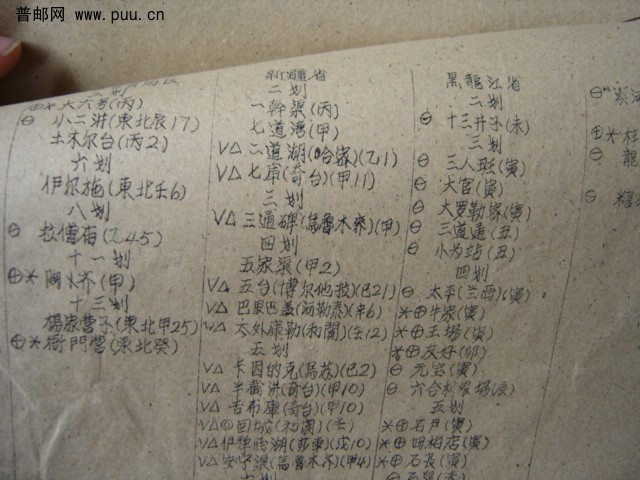 普邮网 www.puu.cn
三划
⊕*大六号(丙)
⊖ 小二洪(東北辰17)
土木尔台(丙2)
六划
伊尔施(東北壬6)
八划
⊖ 拉僧庙(乙45)
十一划
⊕*陶卜齐(甲)
十三划
楊家营子(東北甲25)
⊕*衙門营(東北癸)
新疆省
二划
一幹渠(丙)
七道湾(甲)
V△ 二道湖(哈密)(乙1)
V△ 七軍(奇台)(甲11)
三划
V△ 三通碑(烏魯木齐)(甲)
四划
五家渠(甲2)
V△ 五台(博尔他拉)(巳21)
V△ 巴里巴盖(沥勒泰)(辛6)
V△ 太外庫勒(和闐)(壬12)
五划
V△ 卡因的克(烏苏)(巳2)
V△ 半截洪(奇台)(甲10)
V△ 古布庫(奇台)(甲10)
V△◎回城(和闐)(壬)
V△伊犂西湖(莎車)(戊10)
V△ 安宁渠(烏魯木齐)(甲4)
六划
黑龍江省
二划
⊖ 十三井子(未)
三划
⊖ 三人班(寅)
⊖ 大官(寅)
⊖ 大罗勒密(寅)
⊖ 三道通(丑)
⊖ 小为站(丑)
四划
⊖ 太平(兰西)(寅)
*⊕牛家(寅)
*⊕王場(寅)
*⊕友好(卯)
⊖ 元宝(寅)
⊖ 六合农場(辰)
五划
*⊕石尹(寅)
*⊕四柏店(寅)
*⊕石長(寅)
⊖
⊖
⊕*
⊖ 龍
⊖